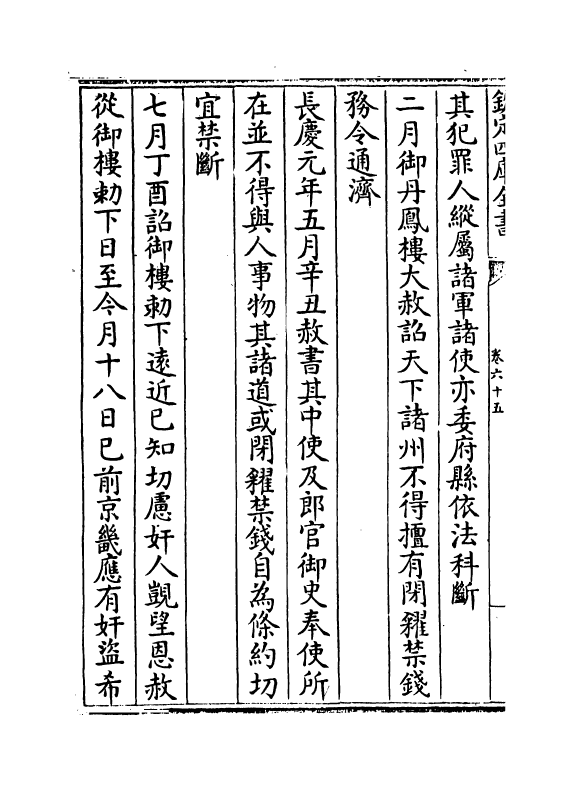 欽定四庫全書
卷六十五
其犯罪人縱屬諸軍諸使亦委府縣依法科斷
二月御丹鳳樓大赦詔天下諸州不得擅有閉糴禁錢
務令通濟
長慶元年五月辛丑赦書其中使及郎官御史奉使所
在並不得與人事物其諸道或閉糴禁錢自為條約切
宜禁斷
七月丁酉詔御樓勅下遠近已知切慮奸人覬望恩赦
從御樓勅下日至今月十八日已前京畿應有奸盜希